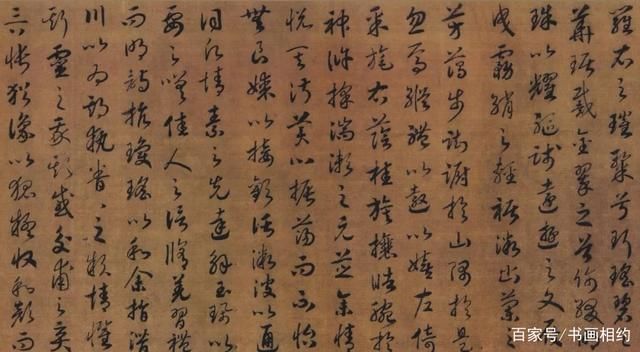 羅衣之璀粲兮珥瑤碧
華琚戴金翠之首飾綴
珠以耀軀踐遠遊之文履
曳霧綃之輕裾微幽蘭之
芳藹步踟躕於山隅於是
忽焉縱體以遨以嬉左倚
采旄右蔭桂旗攘皓腕於
神滸採湍瀨之玄芝余情
悅其淑美心振蕩而不怡
無良媒以接歡託微波以通
情素之先達解玉珮以
要之嗟佳人之信脩羌習禮
而明詩抗瓊瑤以和余指潛
川以為期執眷眷之款情懼
斯靈之我欺感交甫之棄
言悵猶豫以狐疑收和顏而
百家号/书画相约